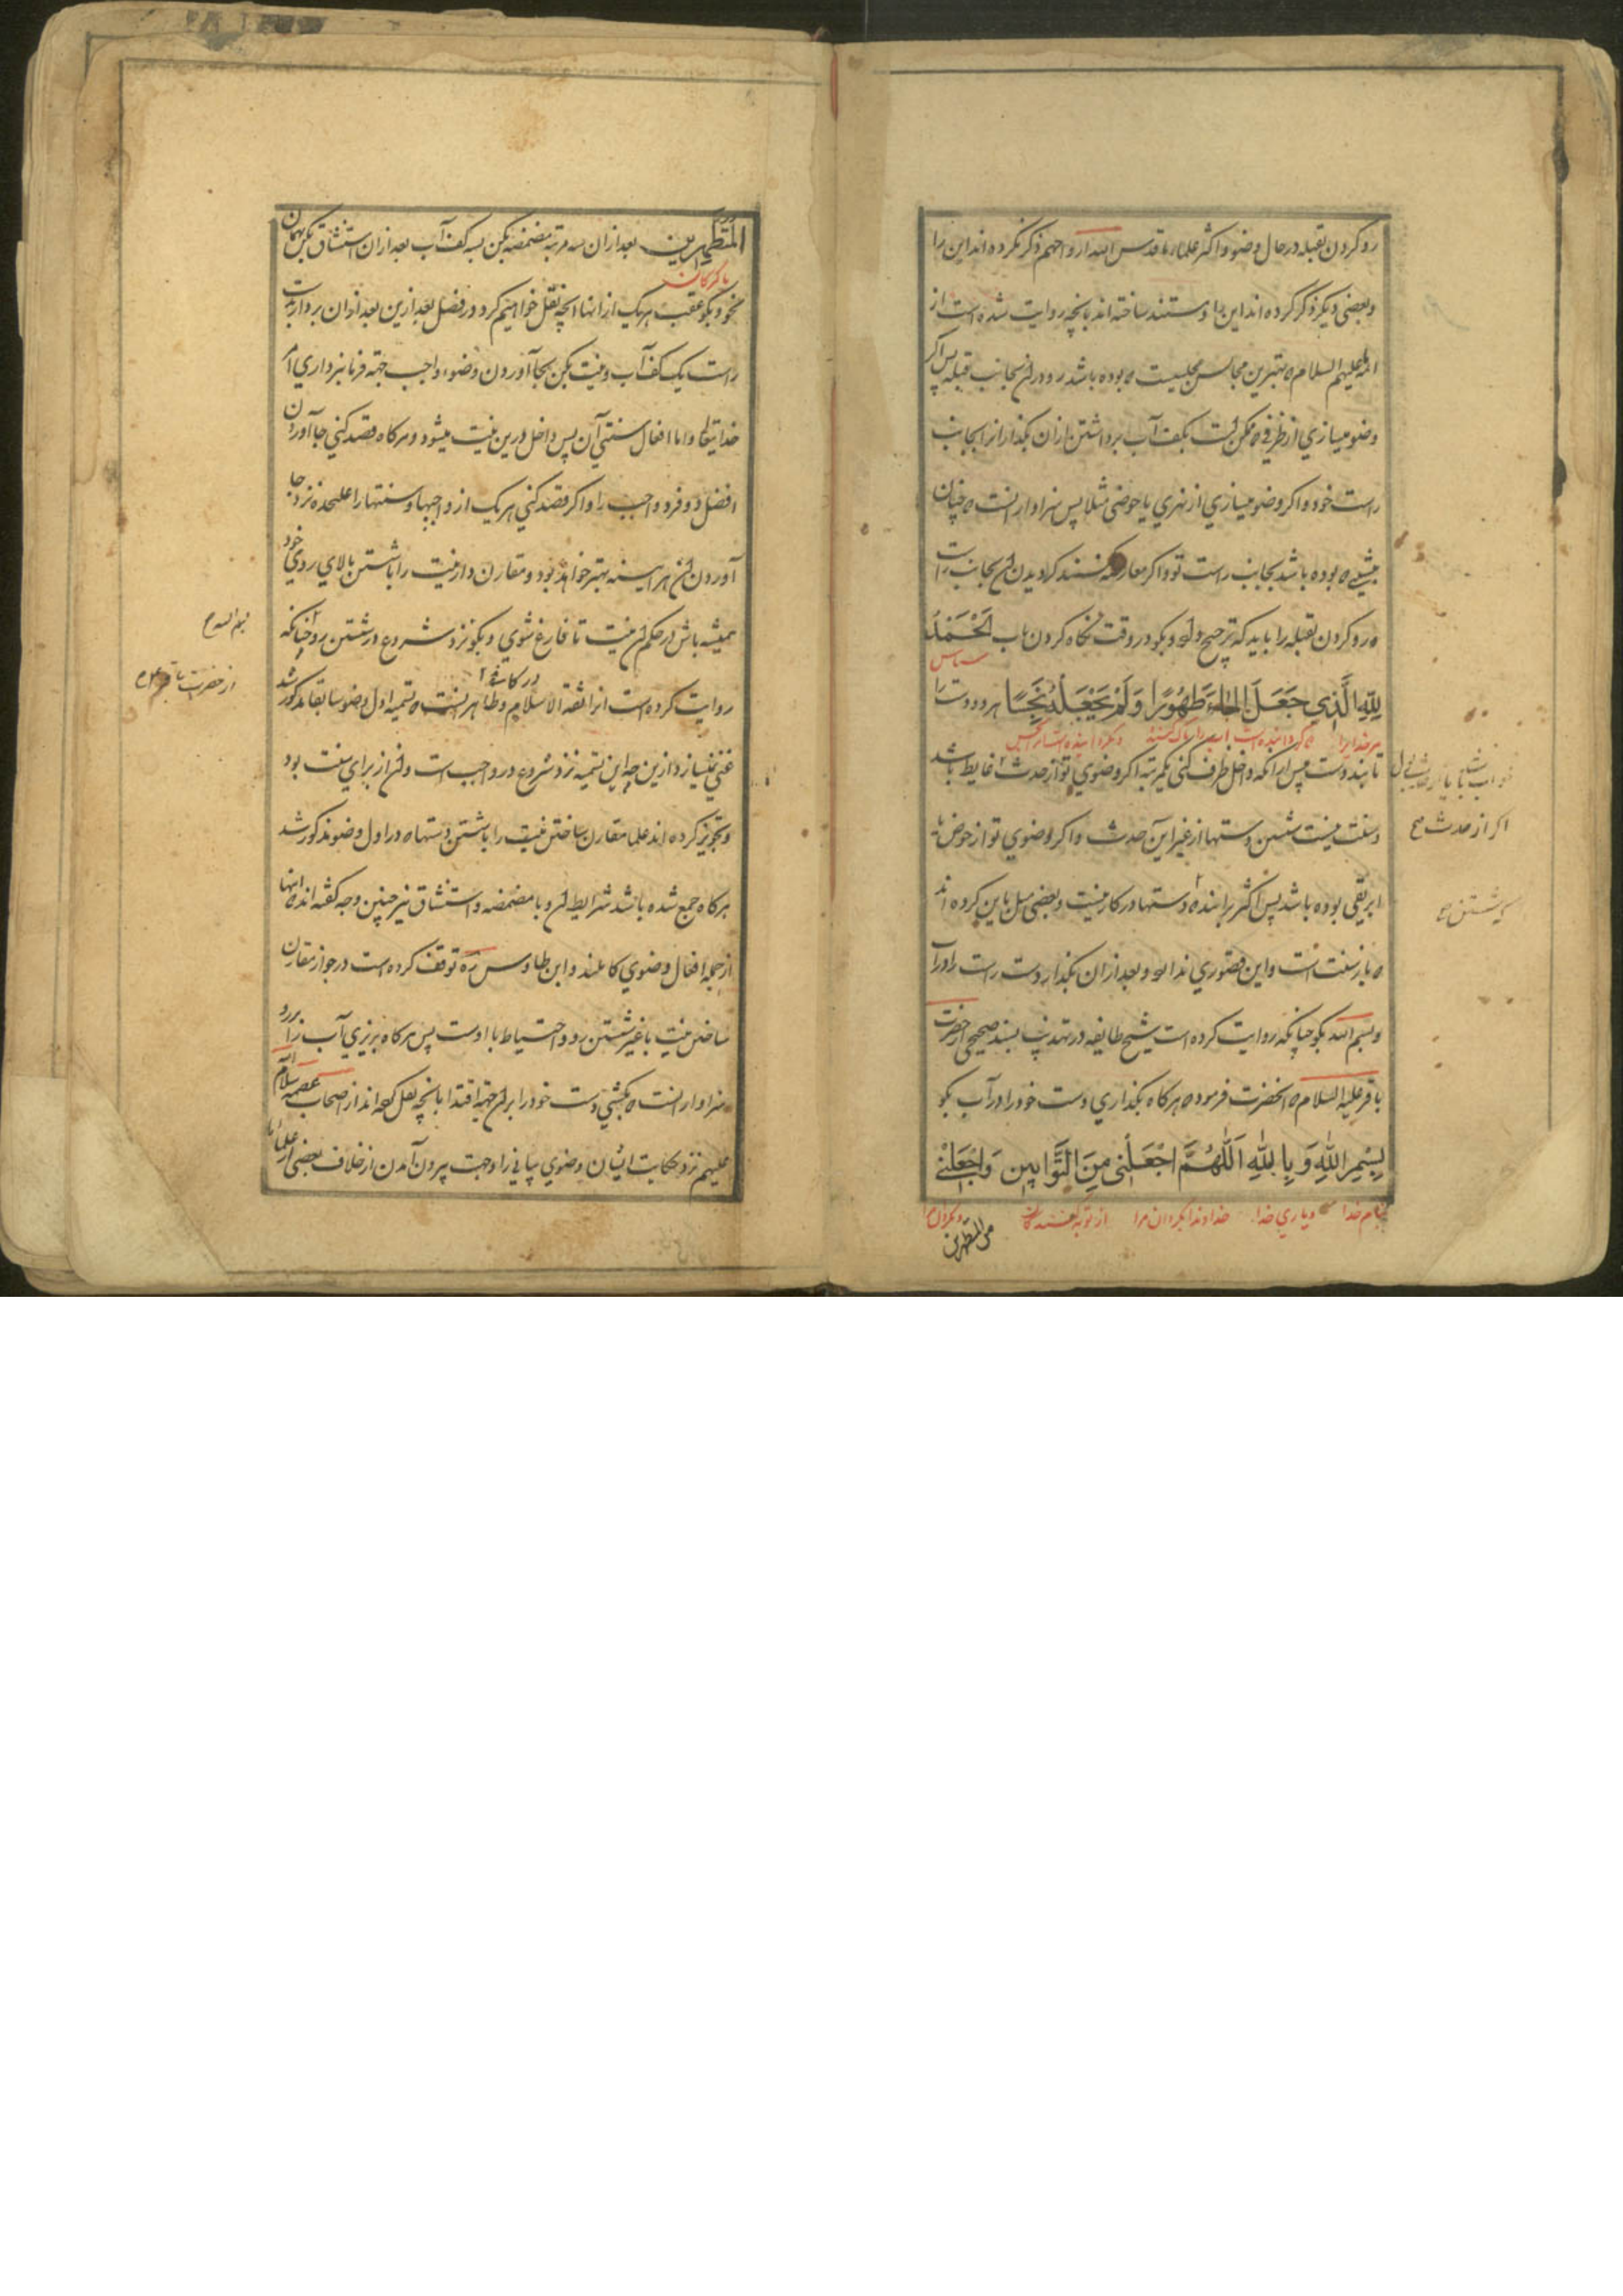 رو کردن بقبله در حال وضو و اکثر علماء ما قدس الله ارواحهم ذکر نکرده اند این را
و بعضی دیکر ذکر کرده اند این را و مستند ساخته اند بانچه روایت شده است از
ائمه علیهم السلام که بهترین مجالس مجلسیست که بوده باشد رو در آن بجانب قبله پس اکر
وضو میسازي از ظرفی که ممکن است بکف آب برداشتن از آن بکذار انرا بجانب
راست خود و اکر وضو میسازي از نهري یا حوضی مثلا پس سزاوار آنست که چنان
بنشینی که بوده باشد بجانب راست تو و اکر معارضه کنند کردیدن آن بجانب راست
که رو کردن بقبله را باید که ترجیح دهي و بکو در وقت نکاه کردن باب اَلْحَمْدُ
سپاس
لِلّٰهِ الَّذِي جَعَلَ الْمَاءَ طَهُوْرًا وَلَمْ يَجْعَلْهُ نَجِسًا هر دو دست را
مر خدایرا که کردانیده است آب را پاک کننده و نکردانیده است انرا نجس
تا بند دست پیش از آنکه داخل ظرف کنی یکمرتبه اکر وضوي تو از حدث غایط باشد
و سنت نیست شستن دستها از غیر این حدث و اکر وضوي تو از حوض یا
ابریقی بوده باشد پس اکثر برانند که دستها در کار نیست و بعضی میل باین کرده اند
که باز سنت است و این قصوري ندارد و بعد از ان بکذار دست راست را در آب
و بسم الله بکو چنانکه روایت کرده است شیخ طایفه در تهذیب بسند صحیح از حضرت
باقر علیه السلام که انحضرت فرموده که هرکاه بکذاري دست خود را در آب بکو
بِسْمِ اللّٰهِ وَ بِاللّٰهِ اَللّٰهُمَّ اجْعَلْنِي مِنَ التَّوَّابِيْنَ وَاجْعَلْنِي
بنام خدا و بیاري خدا خداوندا بکردان مرا از توبه کنندکان و بکردان مرا
من المتطهرین
اکر از حدث
شستن
الْمُتَطَهِّرِيْنَ بعد از ان سه مرتبه مضمضه بکن بسه کف آب بعد از ان استنشاق بکن بهمان
پاکیزکان
نحو و بکو عقب هر یک از انها انچه نقل خواهیم کرد در فصل بعد ازین بعد از ان بردار بدست
راست یک کف آب و نیت بکن بجا آوردن وضوء واجب جهة فرمانبرداري امر
خدایتعالی و اما افعال سنتي آن پس داخل درین نیت میشود و هرکاه قصد کنی بجا آوردن
افضل دو فرد واجب را و اکر قصد کنی هر یک از واجبها و سنتها را علیحده نزد بجا
آوردن آن هر آینه بهتر خواهد بود و مقارن دار نیت را با شستن بالاي روي خود
همیشه باش در حکم آن نیت تا فارغ شوي و بکو نزد شروع در شستن رو چنانکه
روایت کرده است انرا ثقة الاسلام و ظاهر آنست که تسمیه اول وضو سابقا مذکور شد
غنی نمیسازد ازین چه این تسمیه نزد شروع در واجب است و آن از براي سنت بود
و تجویز کرده اند علما مقارن ساختن نیت را با شستن دستها که در اول وضو مذکور شد
هرکاه جمع شده باشد شرایط آن و با مضمضه و استنشاق نیز چنین و وجه کفته اند که اینها
از جمله افعال وضوي کاملند و ابن طاوس ره توقف کرده است در جواز مقارن
ساختن نیت با غیر شستن رو و احتیاط با اوست پس هرکاه بریزي آب را بر رو
سزاوار آنست که بکشي دست خود را بر آن جهة اقتدا بانچه نقل کرده اند از اصحاب عصمة سلام الله
علیهم نزد حکایت ایشان وضوي بیانی را و جهت بیرون آمدن از خلاف بعضی از علماء ما
علیه السلام
از حضرت باقر